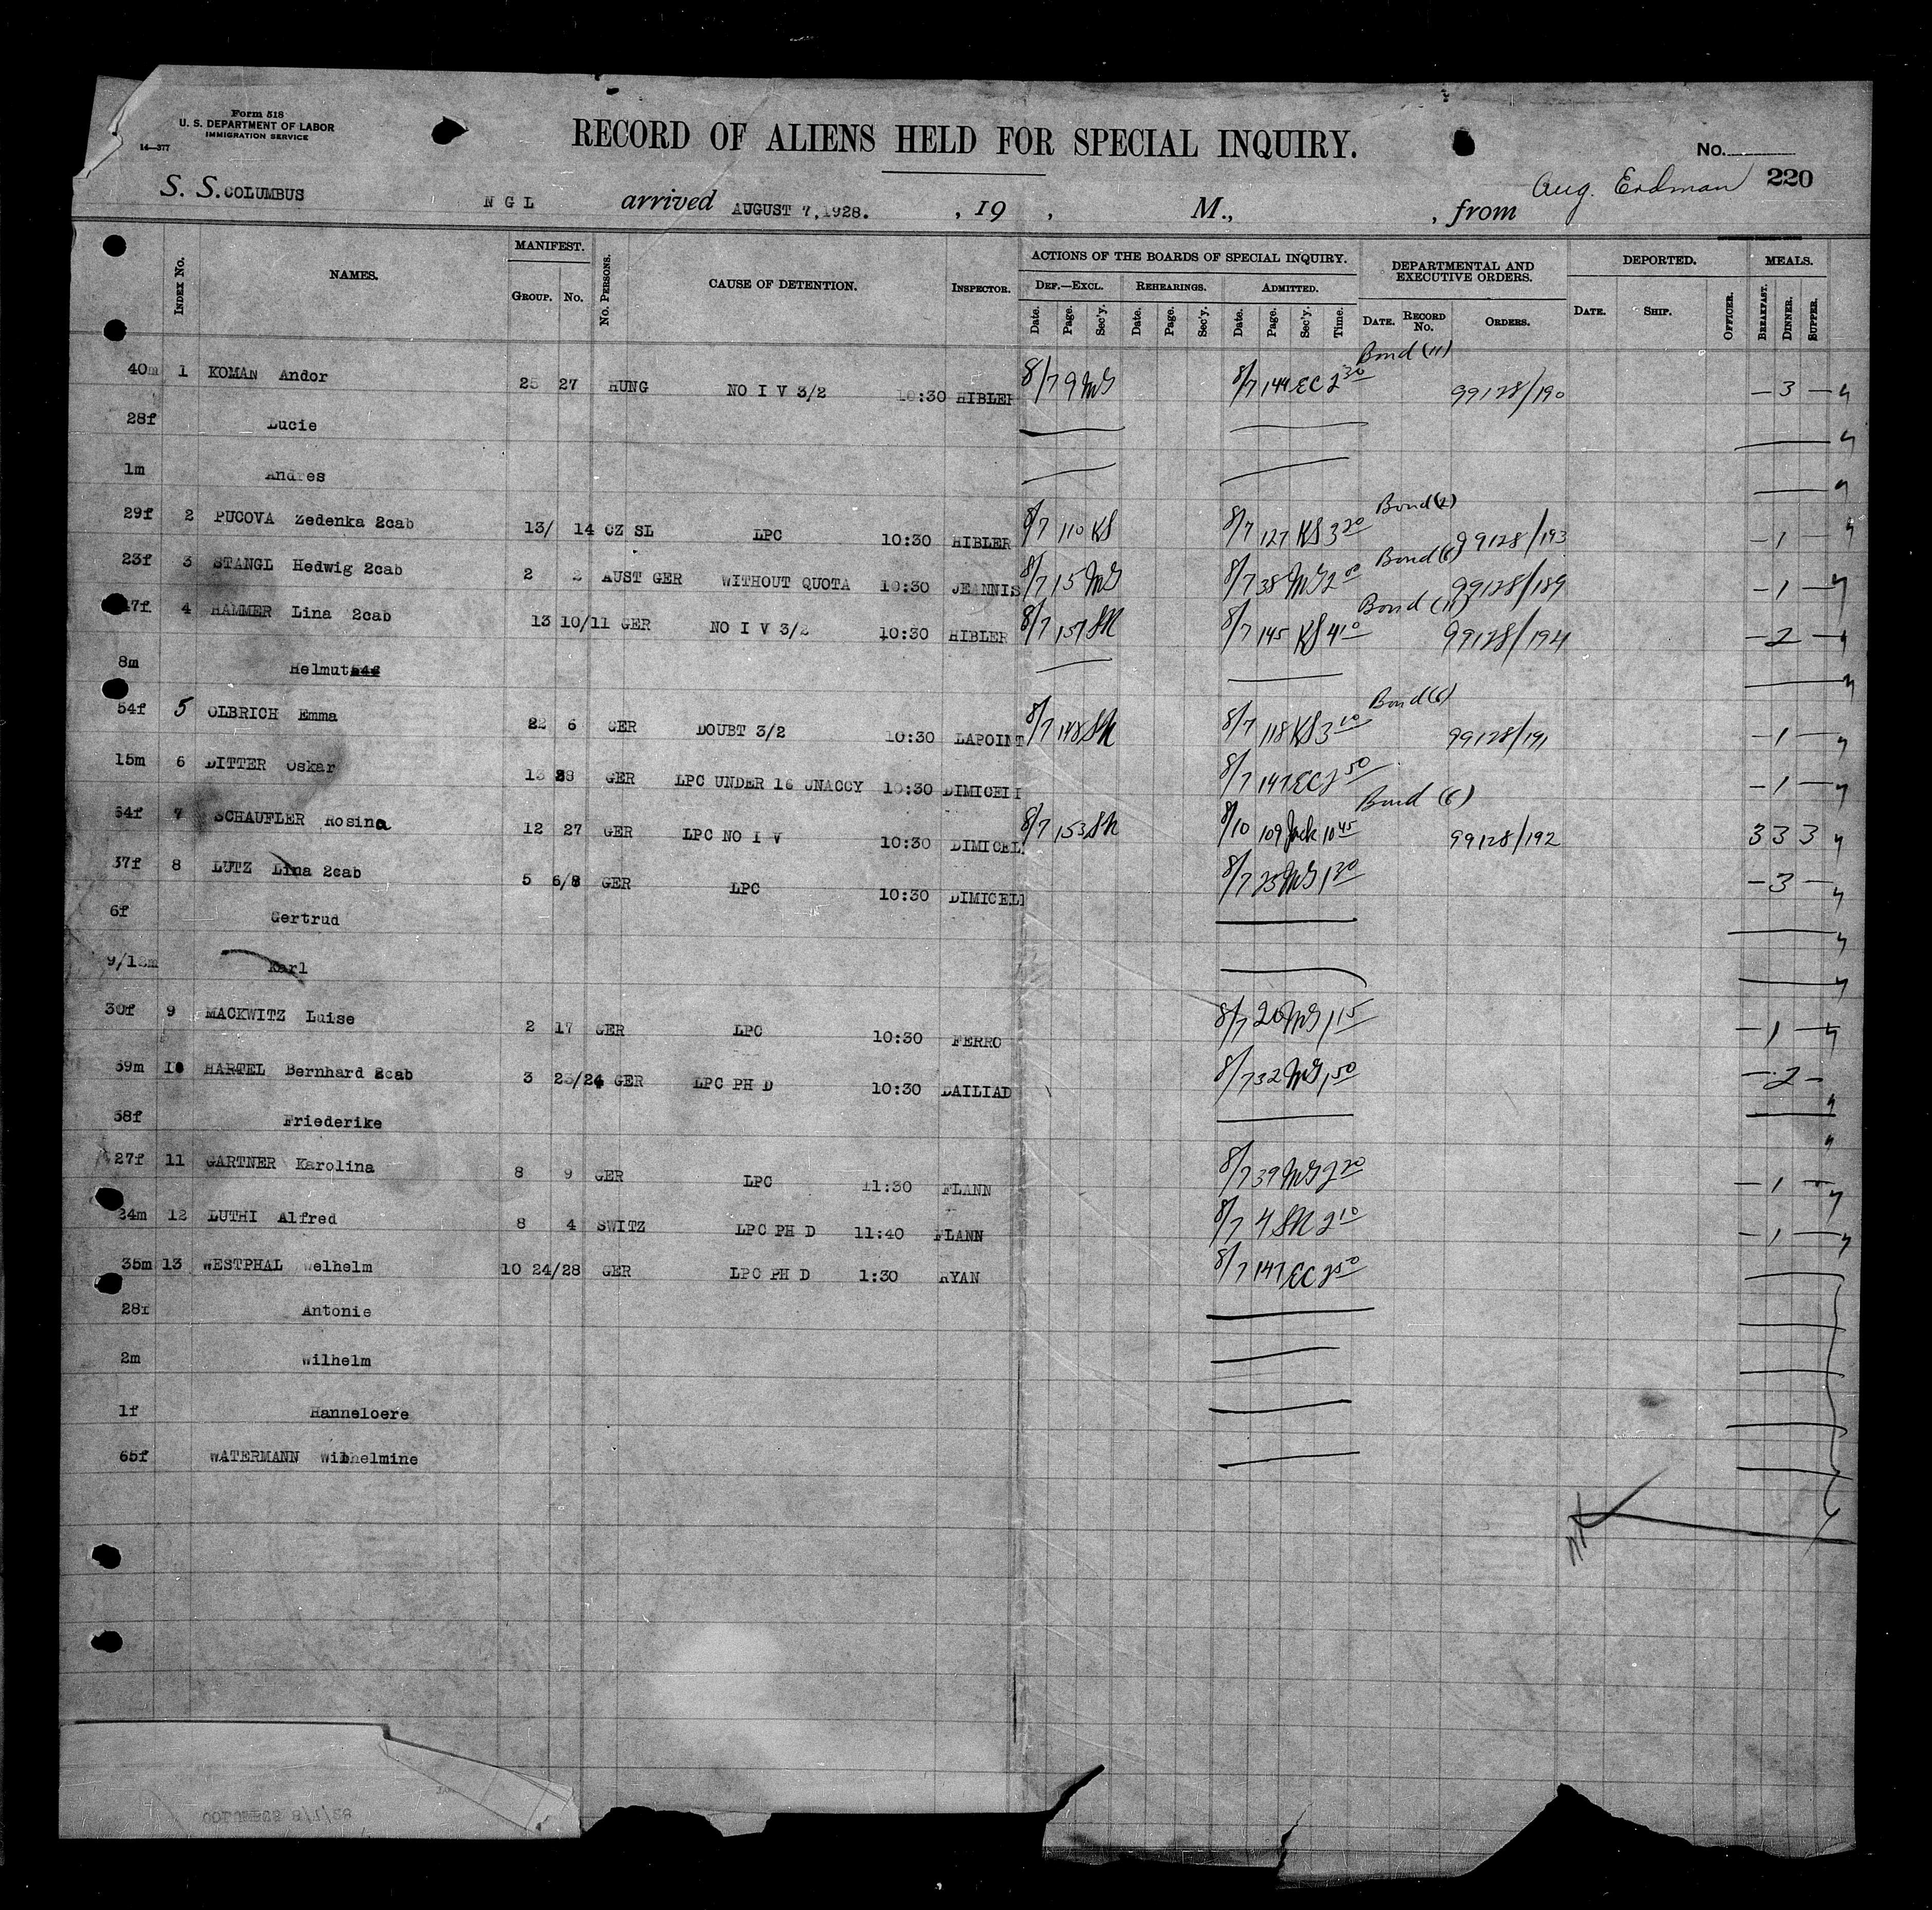 Form 518
U. S. DEPARTMENT OF LABOR
IMMIGRATION SERVICE
14—377
RECORD OF ALIENS HELD FOR SPECIAL INQUIRY.
No.
220
S. S. COLUMBUS N G L arrived AUGUST 7, 1928. , 19 , M., , from Aug. Erdman
INDEX No. NAMES. MANIFEST. GROUP. No. No. PERSONS. CAUSE OF DETENTION. INSPECTOR. ACTIONS OF THE BOARDS OF SPECIAL INQUIRY. DEF.—EXCL. Date. Page. Sec'y. REHEARINGS. Date. Page. Sec'y. ADMITTED. Date. Page. Sec'y. Time. DEPARTMENTAL AND EXECUTIVE ORDERS. DATE. RECORD No. ORDERS. DEPORTED. DATE. SHIP. OFFICER. MEALS. BREAKFAST. DINNER. SUPPER.
40m 1 KOMAN Andor 25 27 HUNG NO I V 3/2 10:30 HIBLER 8/7 9 MG 8/7 144 EC 2 30 Bond (11) 99128/190 — 3 —
28f Lucie
1m Andres
29f 2 PUCOVA Zedenka 2cab 13/ 14 CZ SL LPC 10:30 HIBLER 8/7 110 KS 8/7 127 KS 3 20 Bond 99128/193 — 1 —
23f 3 STANGL Hedwig 2cab 2 2 AUST GER WITHOUT QUOTA 10:30 JEANNIS 8/7 15 MG 8/7 38 MG 2 00 Bond 99128/189 — 1 —
47f 4 HAMMER Lina 2cab 13 10/11 GER NO I V 3/2 10:30 HIBLER 8/7 157 SM 8/7 145 KS 4 10 Bond (11) 99128/194 — 2 —
8m Helmut
54f 5 OLBRICH Emma 22 6 GER DOUBT 3/2 10:30 LAPOINT 8/7 148 SM 8/7 118 KS 3 10 Bond (6) 99128/191 — 1 —
15m 6 DITTER Oskar 13 28 GER LPC UNDER 16 UNACCY 10:30 DIMICELI 8/7 147 EC 2 50 — 1 —
64f 7 SCHAUFLER Rosina 12 27 GER LPC NO I V 10:30 DIMICEL 8/7 153 SM 8/10 109 Jack 10 45 Bond (6) 99128/192 3 3 3
37f 8 LUTZ Lina 2cab 5 6/8 GER LPC 10:30 DIMICELI 8/7 25 MG 1 30 — 3 —
6f Gertrud
Karl
30f 9 MACKWITZ Luise 2 17 GER LPC 10:30 FERRO 8/7 20 MG 1 15 — 1 —
59m 10 HARTEL Bernhard 2cab 3 23/24 GER LPC PH D 10:30 DAILIAD 8/7 32 MG 1 50 — 2 —
58f Friederike
27f 11 GARTNER Karolina 8 9 GER LPC 11:30 FLANN 8/7 39 MG 2 20 — 1 —
24m 12 LUTHI Alfred 8 4 SWITZ LPC PH D 11:40 FLANN 8/7 4 SM 2 10 — 1 —
35m 13 WESTPHAL Welhelm 10 24/28 GER LPC PH D 1:30 RYAN 8/7 147 EC 2 50
28f Antonie
2m Wilhelm
1f Hanneloere
65f WATERMANN Wilhelmine
COLUMBUS 8/7/28